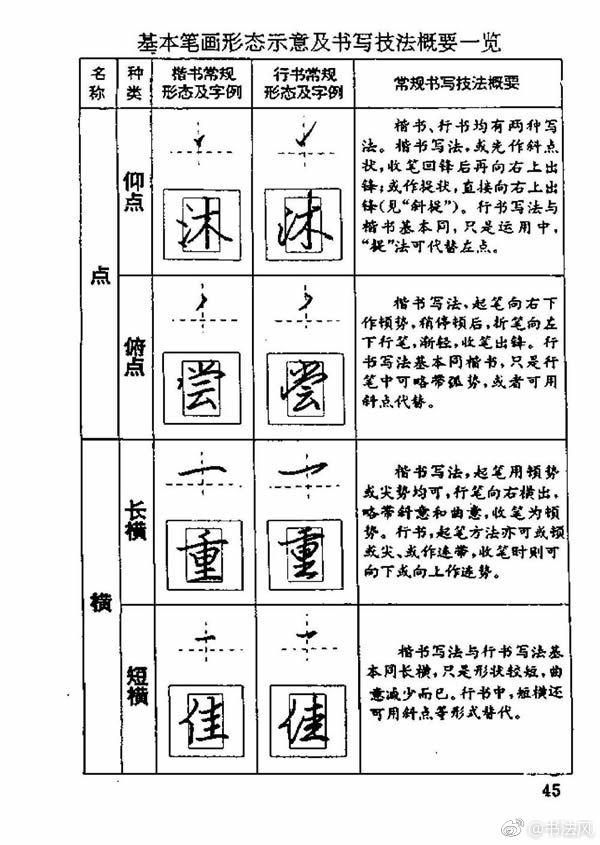 基本笔画形态示意及书写技法概要一览
名称
种类
楷书常规
形态及字例
行书常规
形态及字例
常规书写技法概要
点
仰点
沐
沐
楷书、行书均有两种写
法。楷书写法，或先作斜点
状，收笔回锋后再向右上出
锋；或作提状，直接向右上出
锋(见“斜提”)。行书写法与
楷书基本同，只是运用中，
“提”法可代替左点。
俯点
尝
尝
楷书写法，起笔向右下
作顿势，稍停顿后，折笔向左
下行笔，渐轻，收笔出锋。行
书写法基本同楷书，只是行
笔中可略带弧势，或者可用
斜点代替。
横
长横
重
重
楷书写法，起笔用顿势
或尖势均可，行笔向右横出，
略带斜意和曲意，收笔为顿
势。行书，起笔方法亦可或顿
或尖、或作连带，收笔时则可
向下或向上作连势。
短横
佳
佳
楷书写法与行书写法基
本同长横，只是形状较短，曲
意减少而已。行书中，短横还
可用斜点等形式替代。
45
@书法风